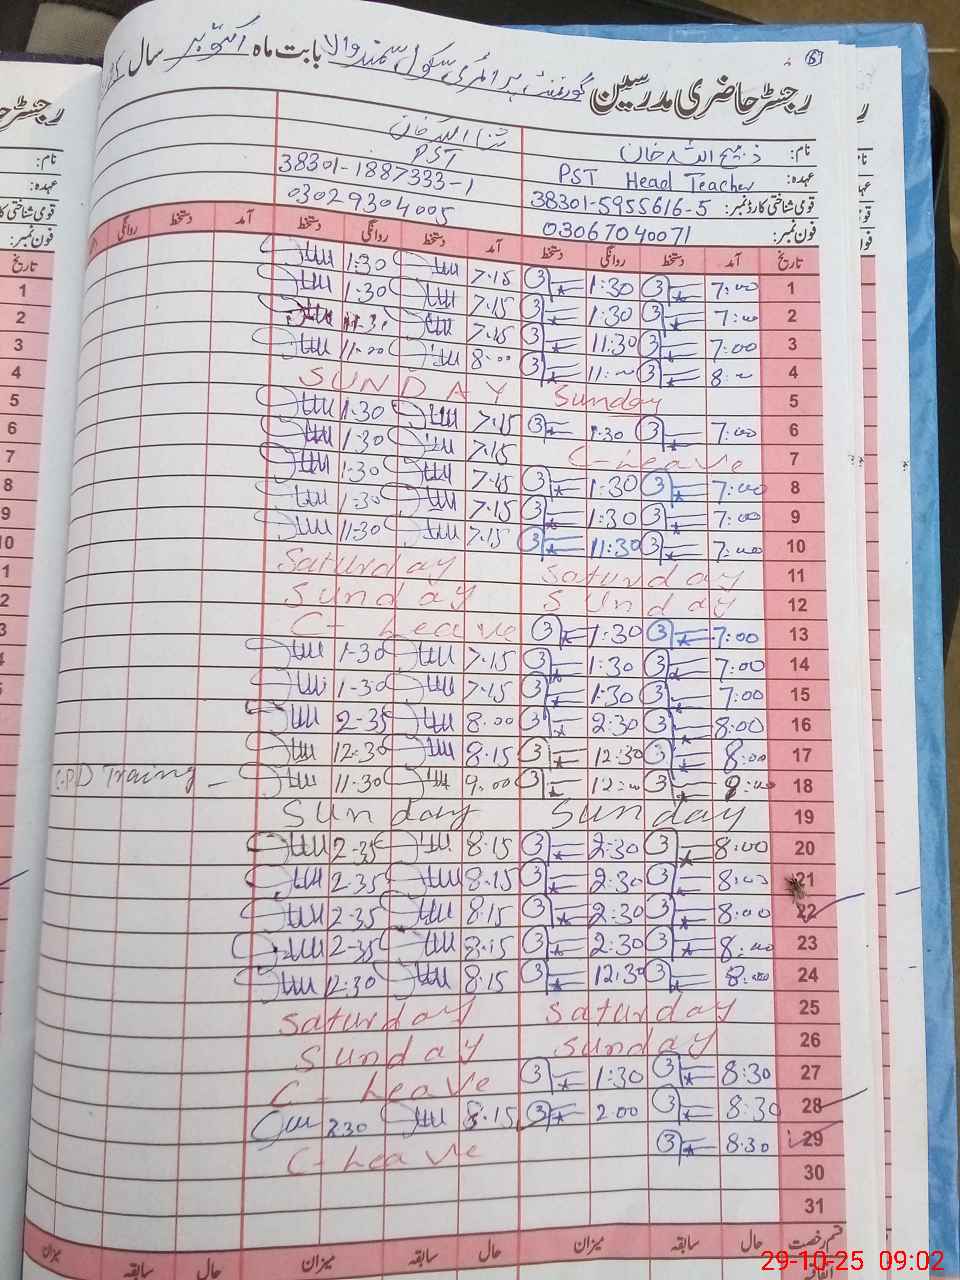 6
رجسٹر حاضری مدرسین گورنمنٹ پرائمری سکول سمندوالا بابت ماہ اکتوبر سال
نام: ذبیح اللہ خان ثناء اللہ خان
عہدہ: PST Head Teacher PST
قومی شناختی کارڈ نمبر: 38301-5955616-5 38301-1887333-1
فون نمبر: 03067040071 03029304005
تاریخ آمد دستخط روانگی دستخط آمد دستخط روانگی دستخط آمد دستخط روانگی
1 7:00 1:30 7.15 1:30
2 7:00 1:30 7.15 1:30
3 7:00 11:30 7.15 11-30
4 8:00 11:00 8:00 11:00
5 Sunday SUNDAY
6 7:00 1:30 7.15 1.30
7 C-Leave 7.15 1-30
8 7:00 1:30 7.15 1-30
9 7:00 1:30 7.15 1-30
10 7:00 11:30 7.15 11-30
11 Saturday Saturday
12 Sunday Sunday
13 7:00 1:30 C-Leave
14 7:00 1:30 7.15 1-30
15 7:00 1:30 7.15 1-30
16 8:00 2:30 8:00 2-35
17 8:00 12:30 8.15 12-30
18 9:00 12:00 9:00 11-30
19 Sunday Sunday
20 8:00 2:30 8.15 2-35
21 8:00 2:30 8.15 2-35
22 8:00 2:30 8.15 2-35
23 8:00 2:30 8.15 2-35
24 8:00 12:30 8.15 12:30
25 Saturday Saturday
26 Sunday Sunday
27 8:30 1:30 C-Leave
28 8:30 2:00 8.15 2.30
29 8:30 C-Leave
30
31
قسم رخصت حال سابقہ میزان حال سابقہ میزان حال سابقہ میزان
29-10-25 09:02